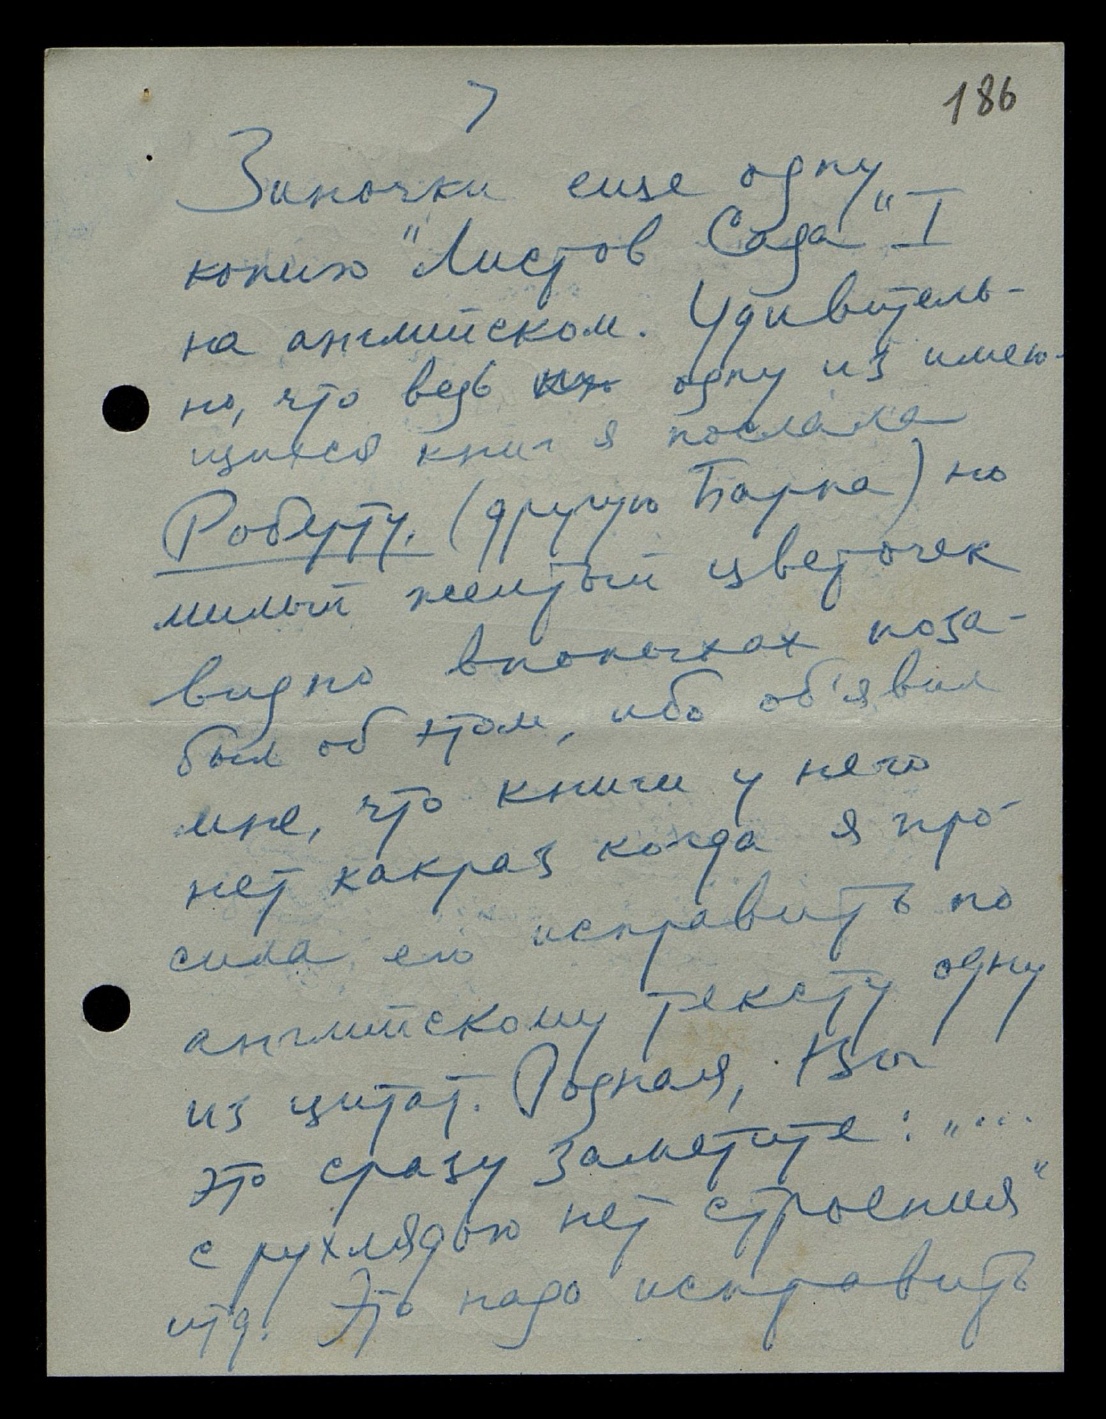 7
186
Зиночки еще одну
копию "Листов Сада" I
на английском. Удивитель-
но, что ведь одну из имею-
щихся книг я послала
Роберту. (другую Барна) но
милый желтый цветочек
видно впопыхах поза-
был об этом, ибо об'явил
мне, что книги у него
нет какраз когда я про-
сила его исправить по
английскому тексту одну
из цитат. Родная, Вы
это сразу заметите: "....
с рухлядью нет строения"
итд. Это надо исправить